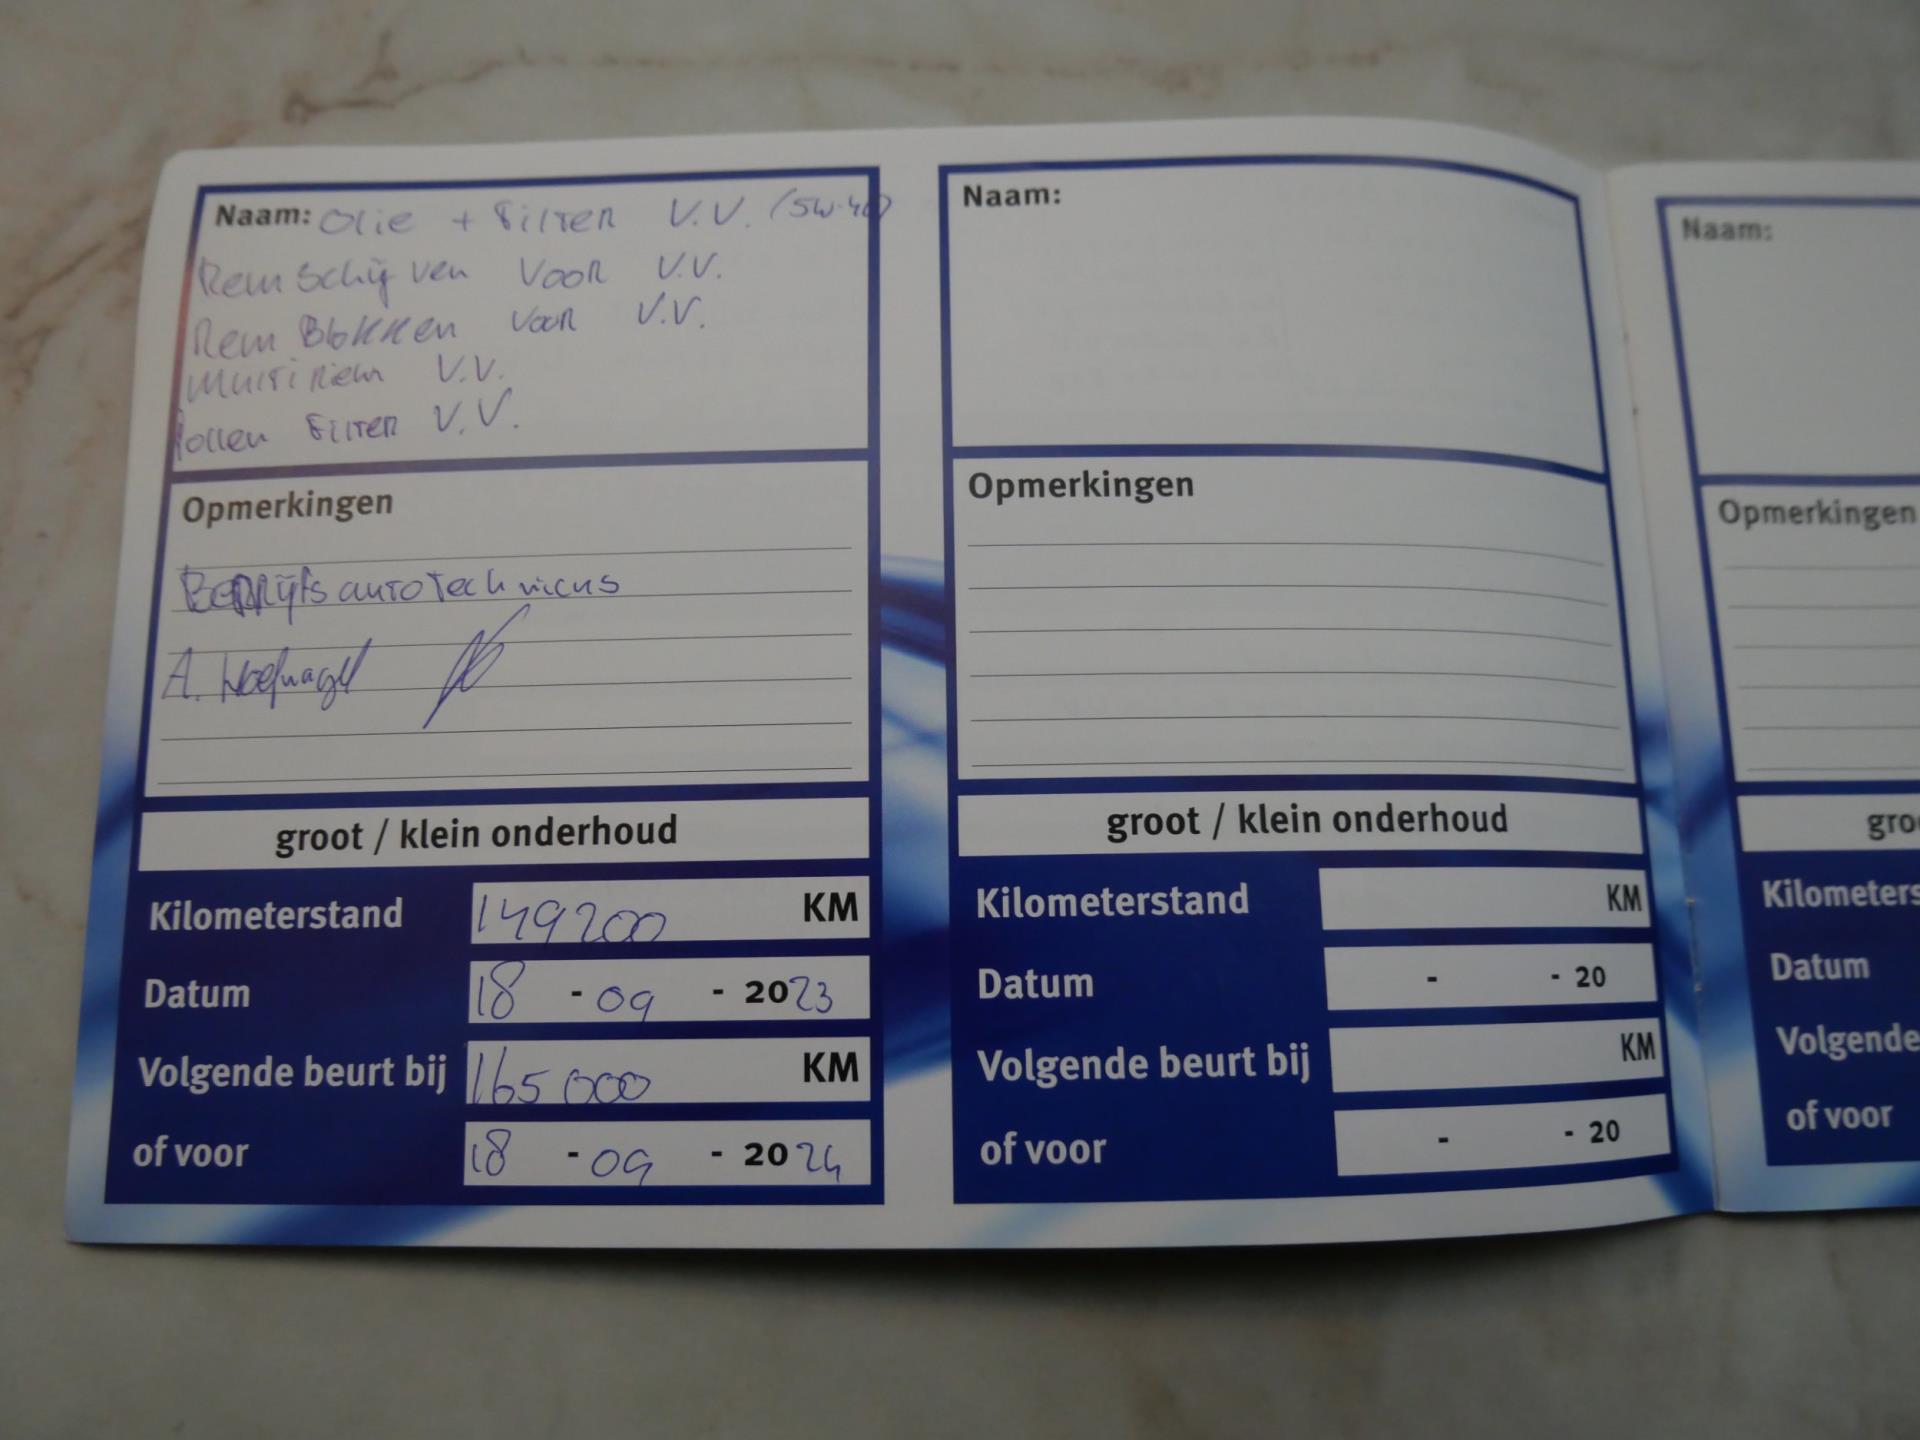 Naam: Olie + Filter V.V. (5W-40)
Remschijven Voor V.V.
Rem Blokken Voor V.V.
Multiriem V.V.
Pollen Filter V.V.
Opmerkingen
Bedrijfsautotechnicus
A. Hoefnagel
groot / klein onderhoud
Kilometerstand 149200 KM
Datum 18 - 09 - 2023
Volgende beurt bij 165000 KM
of voor 18 - 09 - 2024
Naam:
Opmerkingen
groot / klein onderhoud
Kilometerstand KM
Datum - - 20
Volgende beurt bij KM
of voor - - 20
Naam:
Opmerkingen
gro
Kilometers
Datum
Volgende
of voor